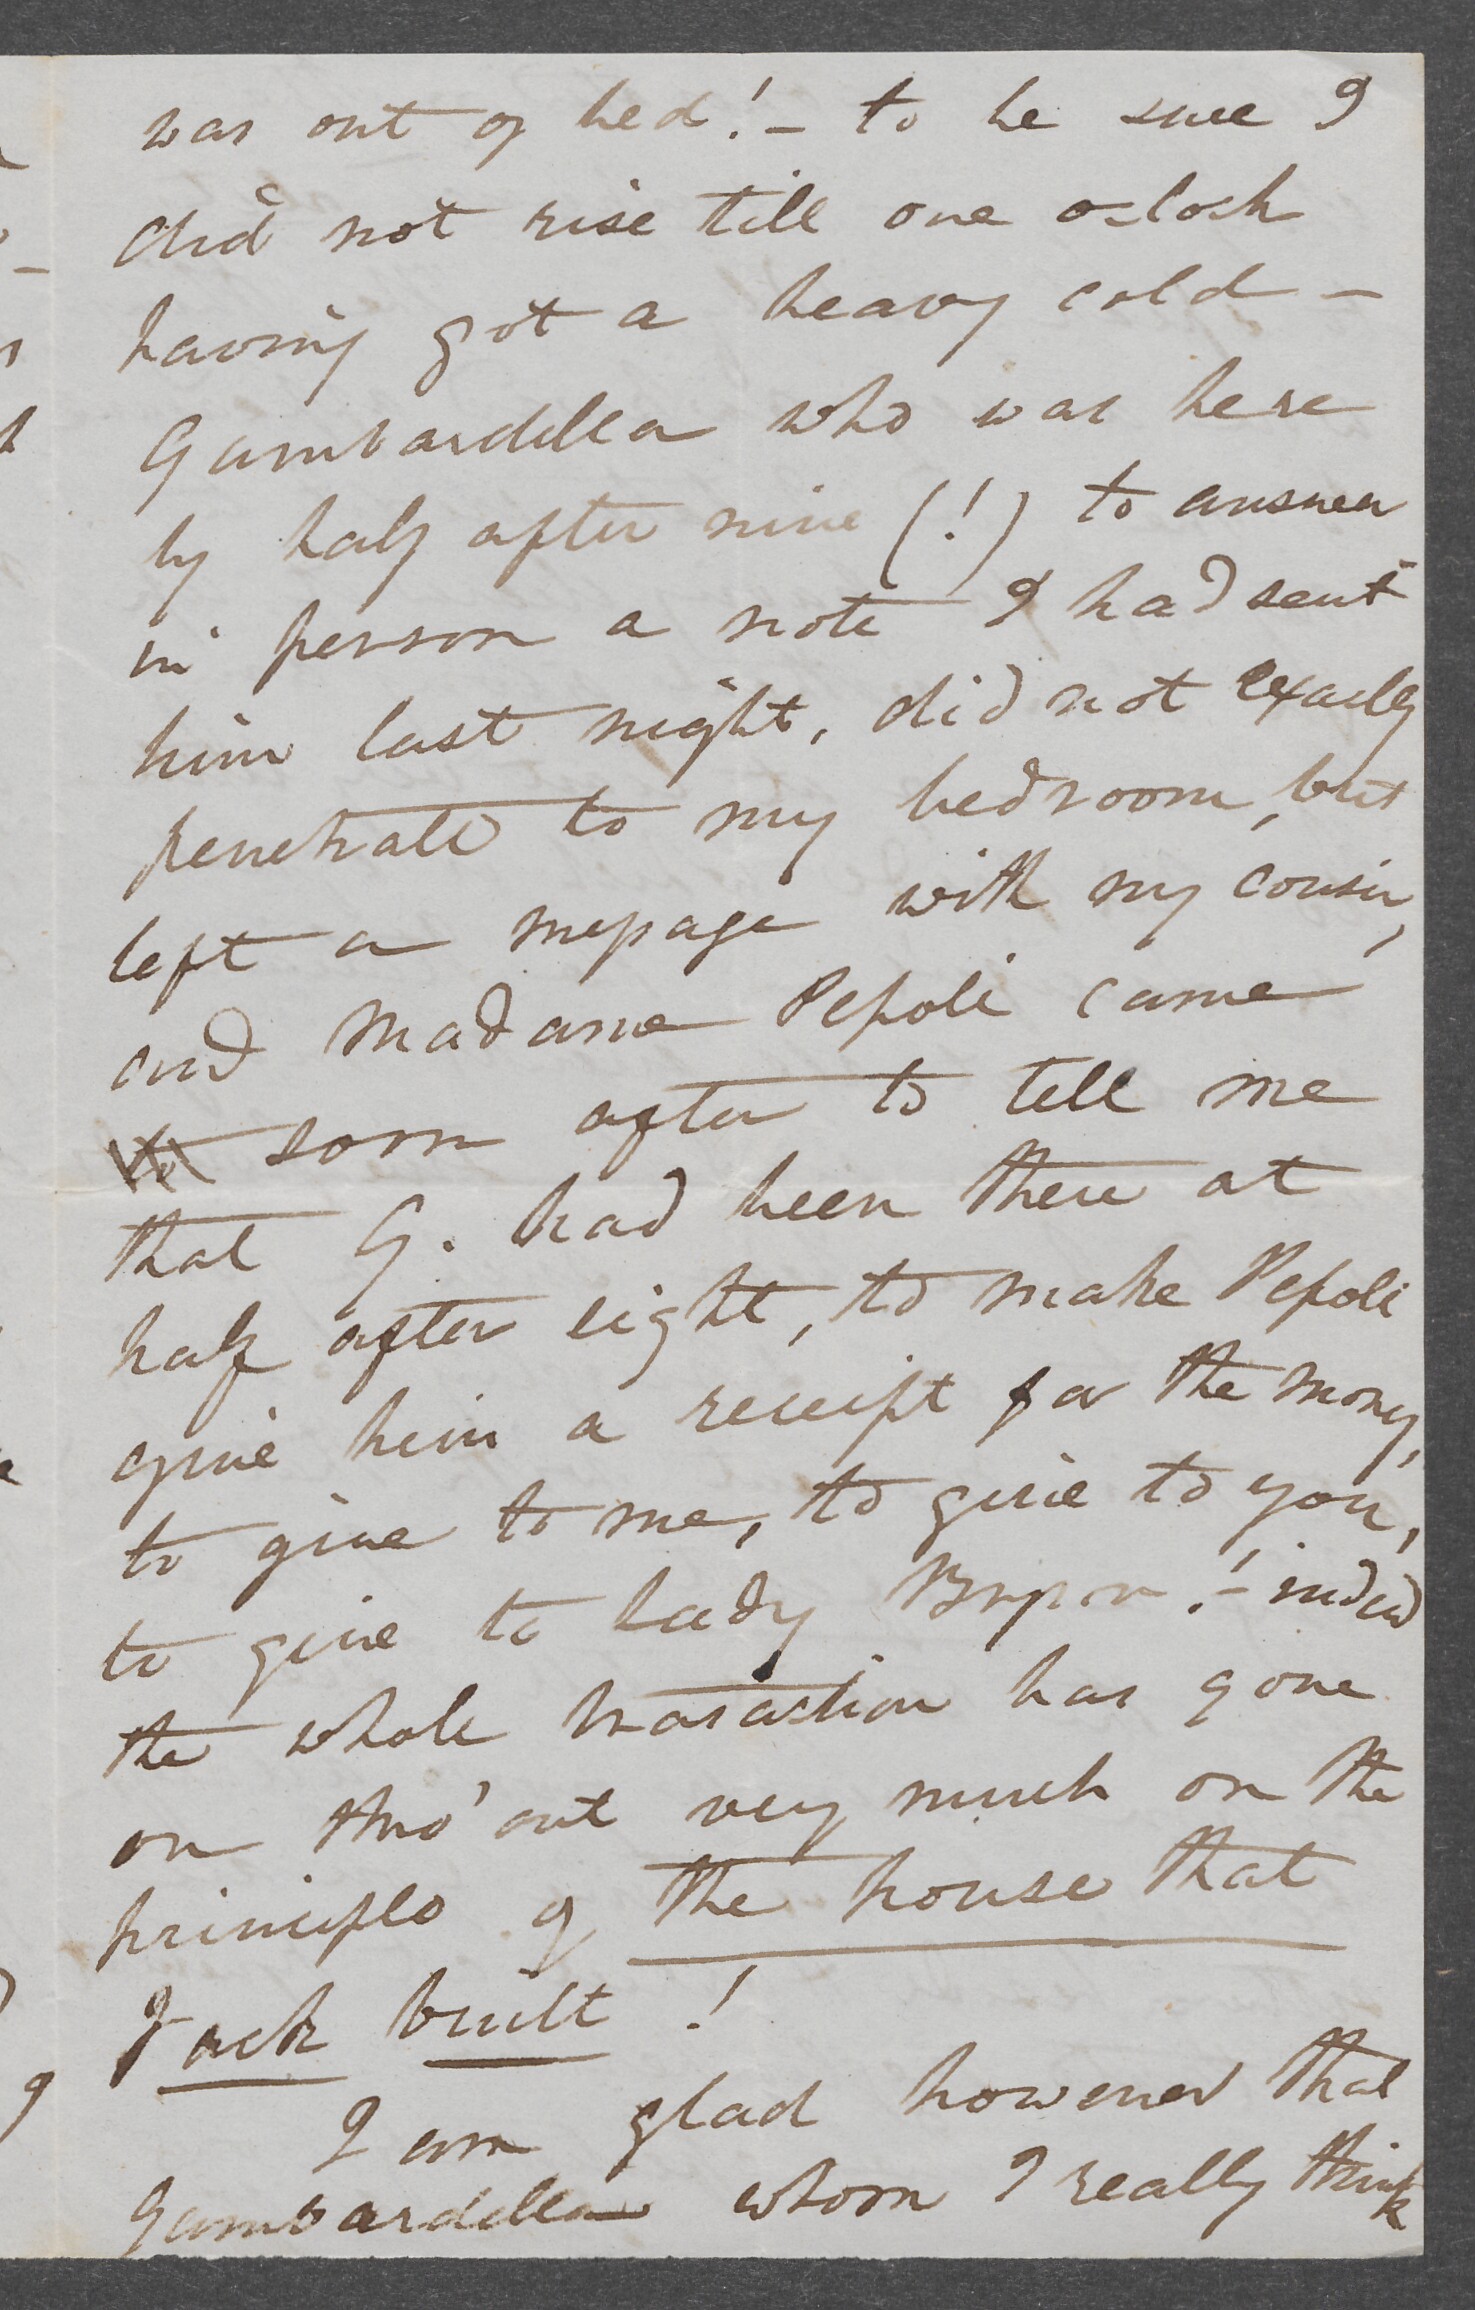 was out of bed! – to be sure I
did not rise till one oclock
having got a heavy cold –
Gambardella who was here
by half after nine (!) to answer
in person a note I had sent
him last night, did not exactly
penetrate to my bedroom, but
left a message with my cousin,
and Madame Pepoli came
to soon after to tell me
that G. had been there at
half after eight, to make Pepoli
give him a receipt for the money,
to give to me, to give to you,
to give to Lady Byron! – indeed
the whole trasaction has gone
on thro'out very much on the
principle of the house that
Jack built!
I am glad however that
Gambardella whom I really think